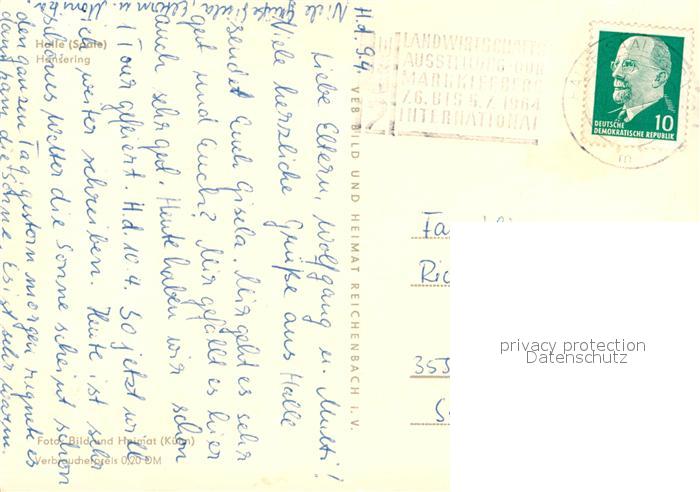 Halle (Saale)
Hansering
H. d. 9.4.
Liebe Eltern, Wolfgang u. Mutti!
Viele herzliche Grüße aus Halle
sendet Euch Gisela. Mir geht es sehr
gut und Euch? Mir gefällt es hier
auch sehr gut. Heute haben wir schon
1 Tour gefeiert. H. d. 10.4. So jetzt will
ich weiter schreiben. Heute ist sehr
schönes Wetter die Sonne scheint schon
den ganzen Tag, gestern morgen regnet es
dann kam die Sonne. Es ist sehr warm.
Viele Grüße Gisela, Eltern u. Monika.
Foto: Bild und Heimat (Kühn)
Verbraucherpreis 0,20 DM
VEB BILD UND HEIMAT REICHENBACH I. V.
LANDWIRTSCHAFTS
AUSSTELLUNG DDR
MARKKLEEBERG
7.6. BIS 5.7. 1964
INTERNATIONAL
DEUTSCHE
DEMOKRATISCHE REPUBLIK
10
355
privacy protection
Datenschutz